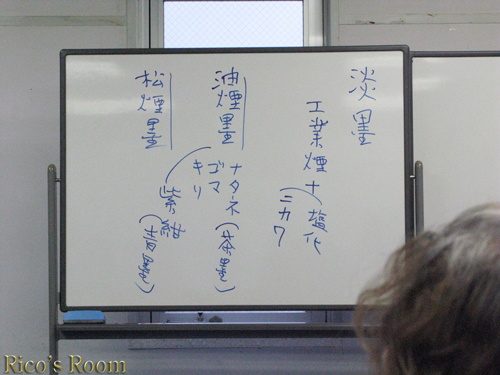 淡墨
工業煙+塩化
ニカワ
油煙墨
ナタネ(茶墨)
ゴマ
キリ
紫紺(青墨)
松煙墨
Rico's Room